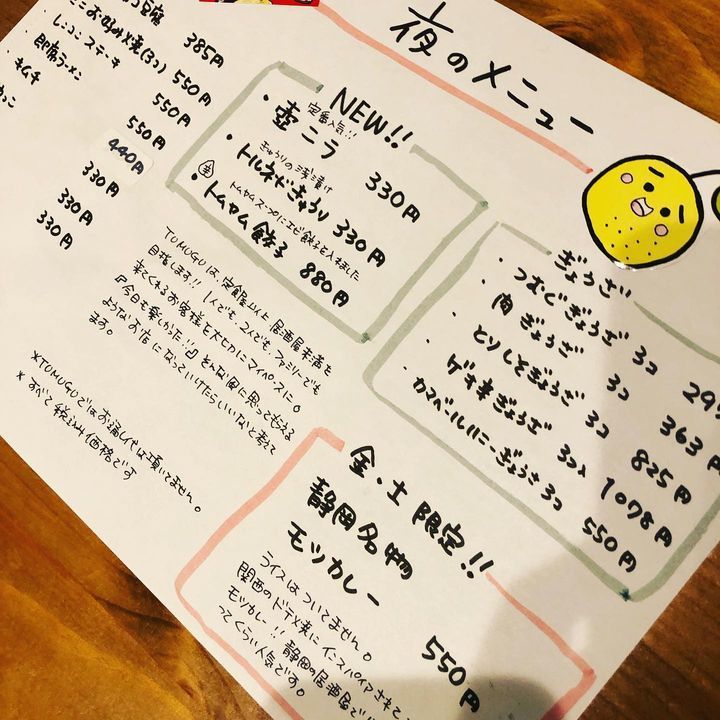 夜のメニュー
豆腐 385円
お好み焼(3コ) 550円
ステーキ 550円
即席ラーメン 550円
キムチ 440円
330円
330円
330円
NEW!!
定番人気!!
・壺ニラ 330円
きゅうりの浅漬け
・トルネードきゅうり 330円
トムヤムスープにエビ餃子を入れました
・トムヤム餃子 880円
ぎょうざ
・つむぐぎょうざ 3コ 29
・肉ぎょうざ 3コ 363円
・とりしそぎょうざ 3コ 825円
・ゲキ辛ぎょうざ 3コ 1078円
・カマンベールハニーぎょうざ 3コ 550円
TUMUGUは定食屋以上居酒屋未満を
目指します!!1人でも2人でもファミリーでも
来てくれるお客様を大切にマイペースに。
『今日も楽しかった!!』そんな風に思ってもらえる
ようなお店になっていけたらいいなと考えて
ます。
*TUMUGUではお通し代は頂いてません。
*すべて税込み価格です
金・土限定!!
静岡名物
モツカレー 550円
ライスはついてません。
関西のドテ焼にインスパイアされて
モツカレー!!静岡の居酒屋で
ってくらい人気です。